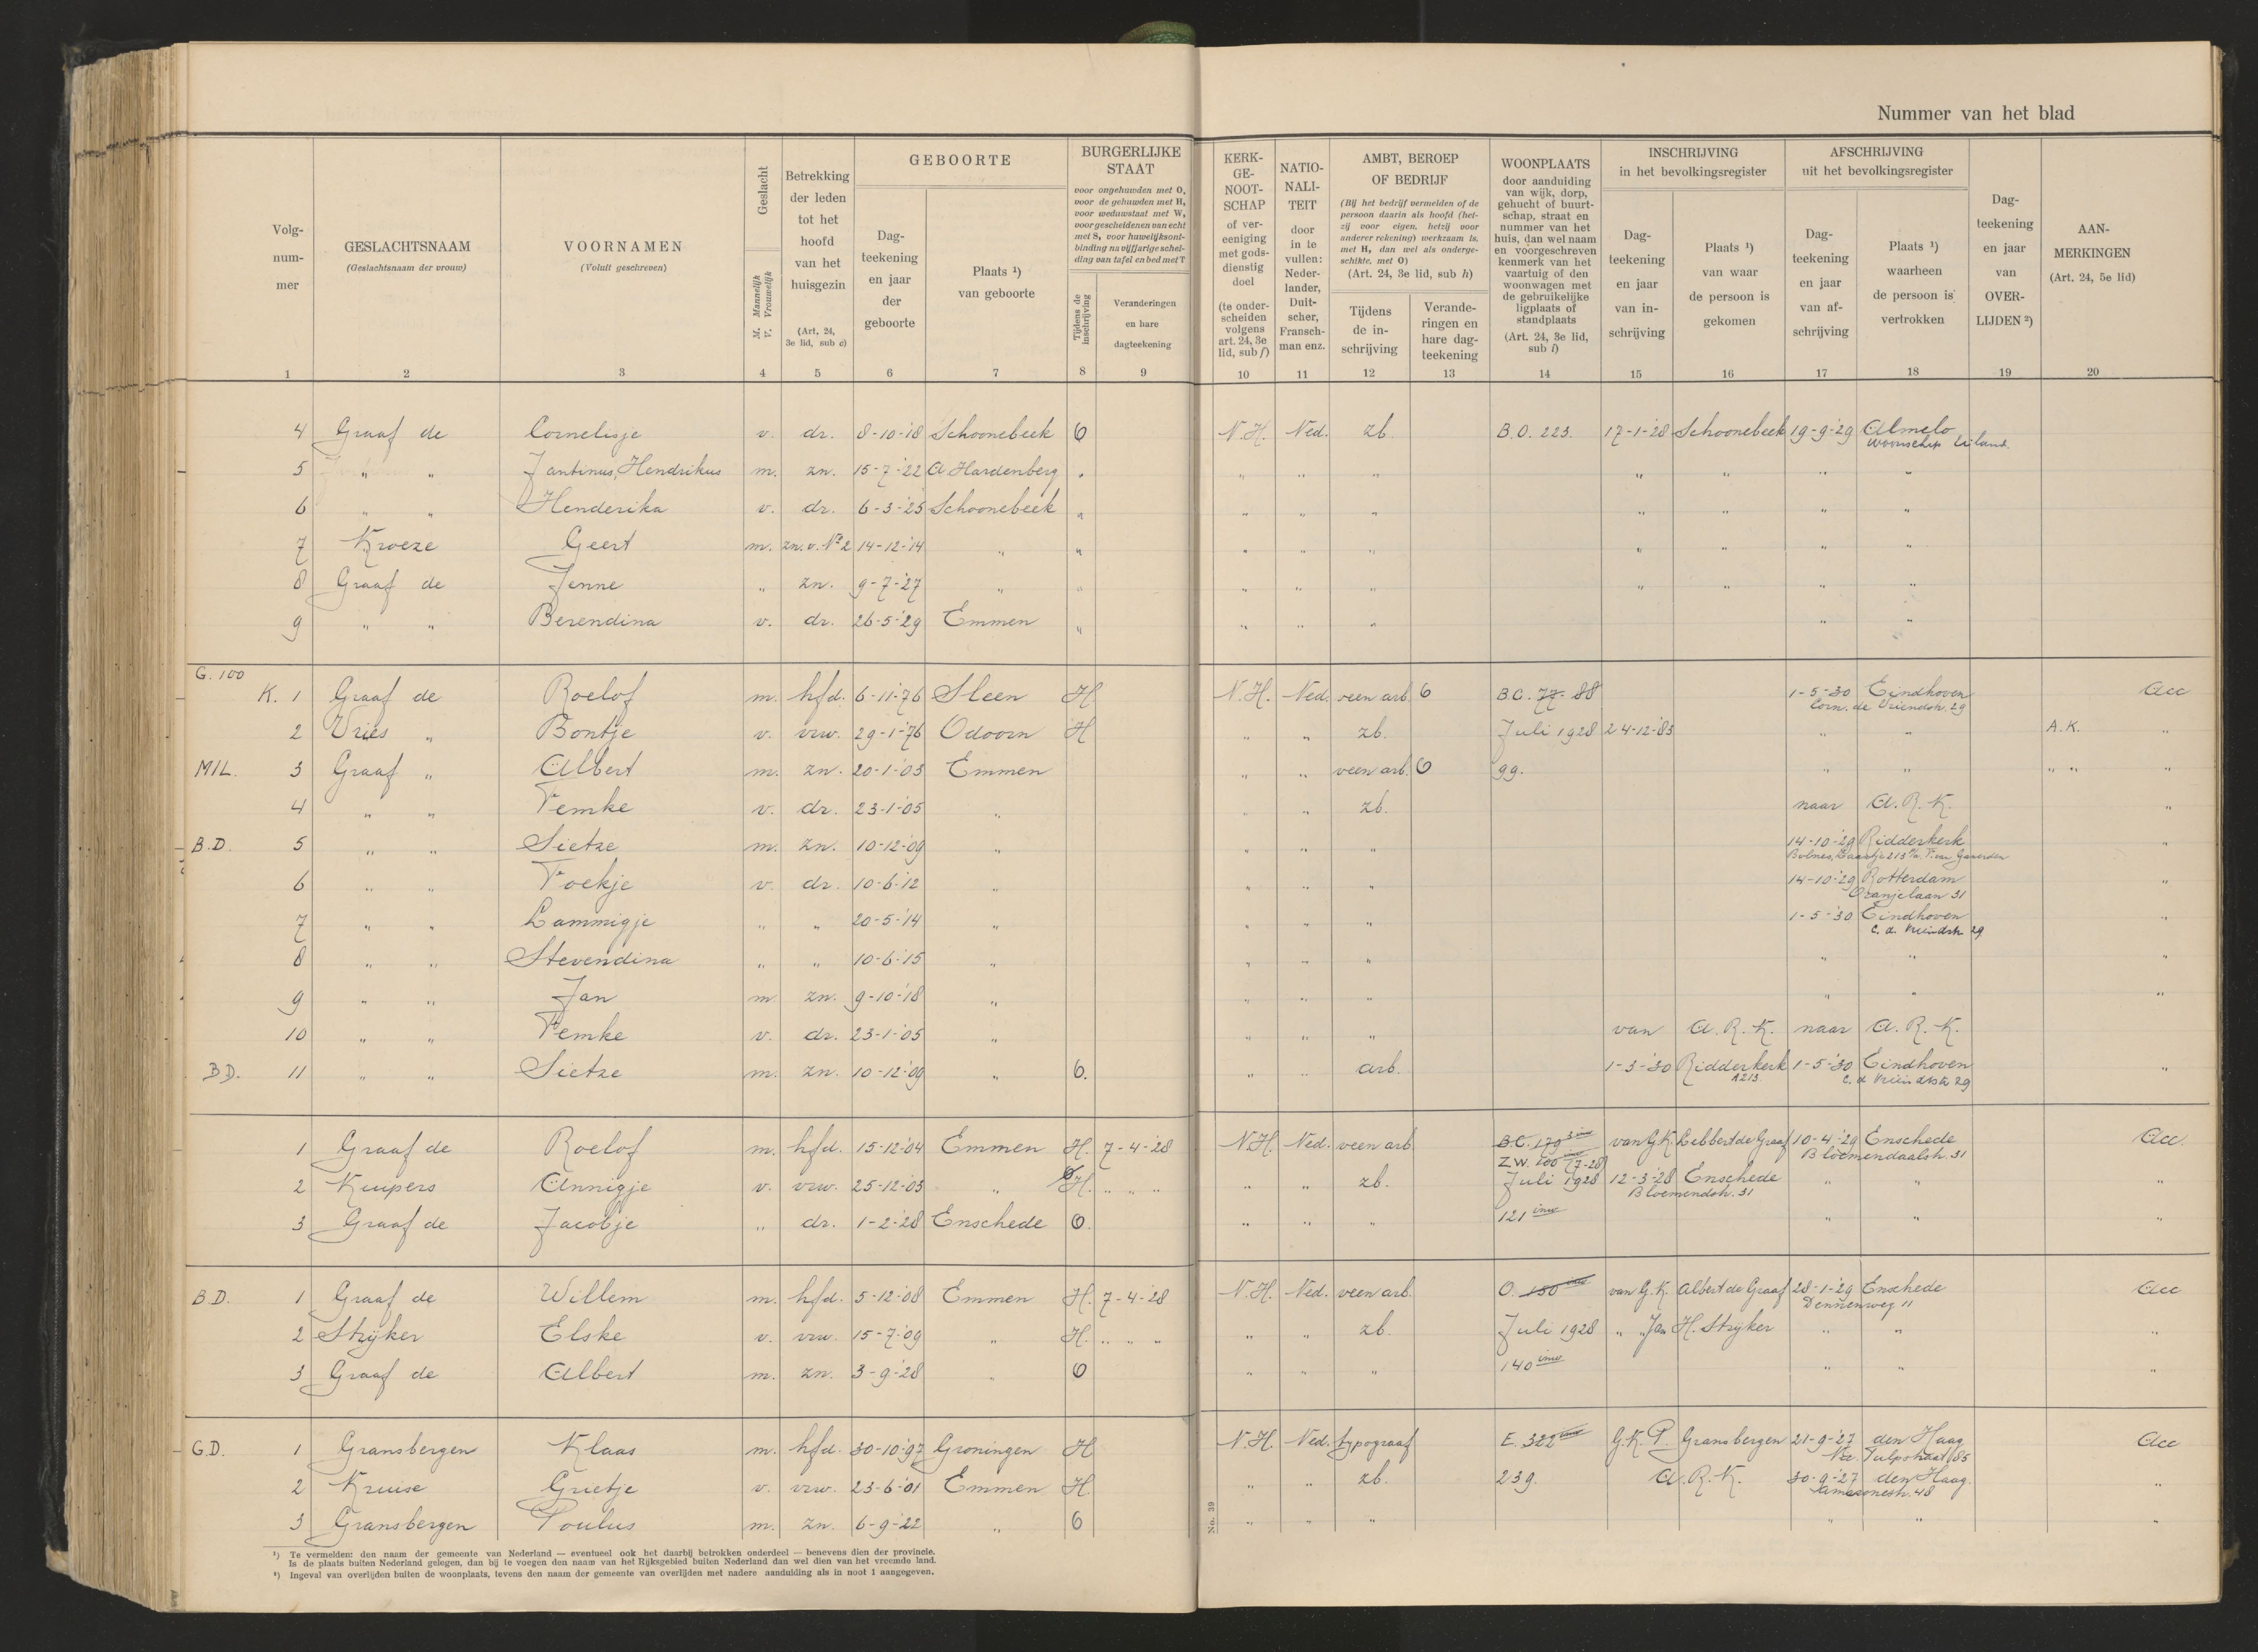 Nummer van het blad
Volgnummer
GESLACHTSNAAM
(Geslachtsnaam der vrouw)
VOORNAMEN
(Voluit geschreven)
Geslacht
M. Mannelijk
V. Vrouwelijk
Betrekking
der leden
tot het
hoofd
van het
huisgezin
(Art, 24,
3e lid, sub c)
GEBOORTE
Dag-
teekening
en jaar
der
geboorte
Plaats ¹)
van geboorte
BURGERLIJKE
STAAT
voor ongehuwden met O,
voor de gehuwden met H,
voor weduwstaat met W,
voor gescheidenen van echt
met S, voor huwelijksont-
binding na vijfjarige schei-
ding van tafel en bed met T
Tijdens de
inschrijving
Veranderingen
en hare
dagteekening
KERK-
GE-
NOOT-
SCHAP
of ver-
eeniging
met gods-
dienstig
doel
(te onder-
scheiden
volgens
art. 24, 3e
lid, sub f)
NATIO-
NALI-
TEIT
door
in te
vullen:
Neder-
lander,
Duit-
scher,
Fransch-
man enz.
AMBT, BEROEP
OF BEDRIJF
(Bij het bedrijf vermelden of de
persoon daarin als hoofd (het-
zij voor eigen, hetzij voor
anderer rekening) werkzaam is,
met H, dan wel als onderge-
schikte, met O)
(Art. 24, 3e lid, sub h)
Tijdens
de in-
schrijving
Verande-
ringen en
hare dag-
teekening
WOONPLAATS
door aanduiding
van wijk, dorp,
gehucht of buurt-
schap, straat en
nummer van het
huis, dan wel naam
en voorgeschreven
kenmerk van het
vaartuig of den
woonwagen met
de gebruikelijke
ligplaats of
standplaats
(Art. 24, 3e lid,
sub i)
INSCHRIJVING
in het bevolkingsregister
Dag-
teekening
en jaar
van in-
schrijving
Plaats ¹)
van waar
de persoon is
gekomen
AFSCHRIJVING
uit het bevolkingsregister
Dag-
teekening
en jaar
van af-
schrijving
Plaats ¹)
waarheen
de persoon is
vertrokken
Dag-
teekening
en jaar
van
OVER-
LIJDEN ²)
AAN-
MERKINGEN
(Art. 24, 5e lid)
1 2 3 4 5 6 7 8 9 10 11 12 13 14 15 16 17 18 19 20
4 Graaf de Cornelisje v. dr. 8-10-'18 Schoonebeek O N.H. Ned. zb. B.O. 223. 17-1-'28 Schoonebeek 19-9-'29 Almelo
woonschip
5 " " Jantinus, Hendrikus m. zn. 15-7-'22 A. Hardenberg " " " " " " " "
6 " " Henderika v. dr. 6-3-'25 Schoonebeek " " " " " " " "
7 Kroeze Geert m. zn. v. No 2 14-12-'14 " " " " " " " " "
8 Graaf de Jenne " zn. 9-7-'27 " " " " " " " " "
9 " " Berendina v. dr. 26-5-'29 Emmen " " " " " "
G. 100
K. 1 Graaf de Roelof m. hfd. 6-11-'76 Sleen H. N.H. Ned. veen arb. O B.C. 77. 88 1-5-'30 Eindhoven Acc
Corn. de Vriendstr. 29
2 Vries " Bontje v. vrw. 29-1-'76 Odoorn H " " zb. Juli 1928 24-12-'83 " " A.K. "
MIL. 3 Graaf " Albert m. zn. 20-1-'03 Emmen " " veen arb. O 99. " " " " "
4 " " Femke v. dr. 23-1-'05 " " " zb. naar A.R.K. "
B.D. 5 " " Sietze m. zn. 10-12-'09 " " " " 14-10-'29 Ridderkerk "
6 " " Foekje v. dr. 10-6-'12 " " " " 14-10-'29 Rotterdam "
Oranjelaan 31
7 " " Lammigje " " 20-5-'14 " " " " 1-5-'30 Eindhoven "
C. d. Vriendstr. 29
8 " " Stevendina " " 10-6-'15 " " " " " " "
9 " " Jan m. zn. 9-10-'18 " " " " " " "
10 " " Femke v. dr. 23-1-'05 " " " " van A.R.K. naar A.R.K.
BD. 11 " " Sietze m. zn. 10-12-'09 " O. " " arb. 1-3-'30 Ridderkerk 1-5-'30 Eindhoven "
A213. C. d. Vriendstr. 29
1 Graaf de Roelof m. hfd. 15-12-'04 Emmen H. 7-4-'28 N.H. Ned. veen arb B.C. 179 3 inw van G.K. Lebbert de Graaf 10-4-'29 Enschede Acc
Z.W. 100 inw 17-28 Bloemendaalstr. 31
2 Kuipers Annigje v. vrw. 25-12-'03 " H. " " " " " zb. Juli 1928 12-3-'28 Enschede " " "
Bloemendstr. 31
3 Graaf de Jacobje " dr. 1-2-'28 Enschede O. " " " 121 inw " " "
B.D. 1 Graaf de Willem m. hfd. 5-12-'08 Emmen H. 7-4-'28 N.H. Ned. veen arb. O. 150 inw van G.K. Albert de Graaf 28-1-'29 Enschede Acc
Dennenweg 11
2 Strijker Elske v. vrw. 15-7-'09 " H. " " " " " zb. Juli 1928 " " Jan H. Strijker " " "
3 Graaf de Albert m. zn. 3-9-'28 " O " " " 140 inw " " "
G.D. 1 Gransbergen Klaas m. hfd. 30-10-'97 Groningen H N.H. Ned. typograaf E. 322 inw G.K. P. Gransbergen 21-9-'27 den Haag Acc
Tulpstraat 185
2 Kruise Grietje v. vrw. 23-6-'01 Emmen H. " " zb. 239. A.R.K. 30-9-'27 den Haag. "
3 Gransbergen Poulus m. zn. 6-9-'22 " O " " " " " "
No. 39
¹) Te vermelden: den naam der gemeente van Nederland — eventueel ook het daarbij betrokken onderdeel — benevens dien der provincie.
Is de plaats buiten Nederland gelegen, dan bij te voegen den naam van het Rijksgebied buiten Nederland dan wel dien van het vreemde land.
²) Ingeval van overlijden buiten de woonplaats, tevens den naam der gemeente van overlijden met nadere aanduiding als in noot 1 aangegeven.